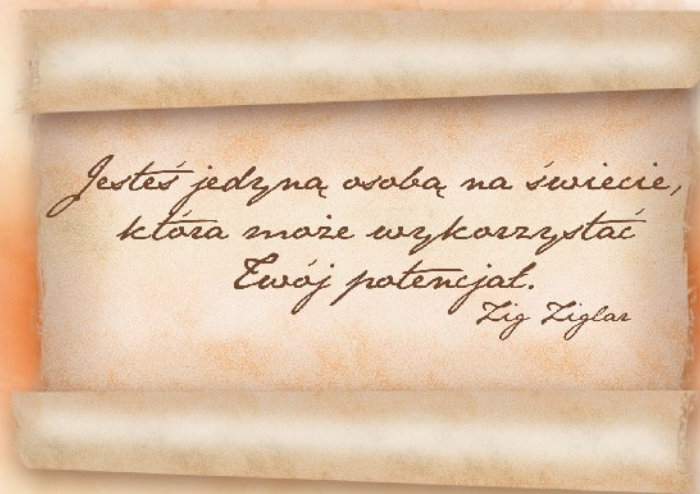 Jesteś jedyną osobą na świecie,
która może wykorzystać
Twój potencjał.
Zig Ziglar